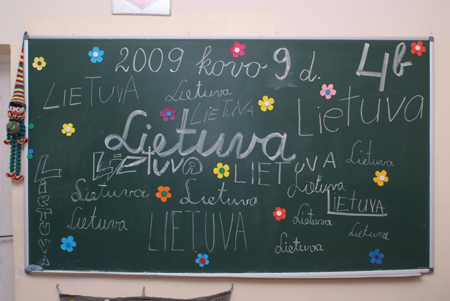 2009 kovo 9 d. 4b
LIETUVA Lietuva Lietuva
LIETUVA
Lietuva
Lietuva LIETUVA Lietuva
LIETUVA
Lietuva Lietuva Lietuva LIETUVA
Lietuva LIETUVA Lietuva Lietuva
Lietuva